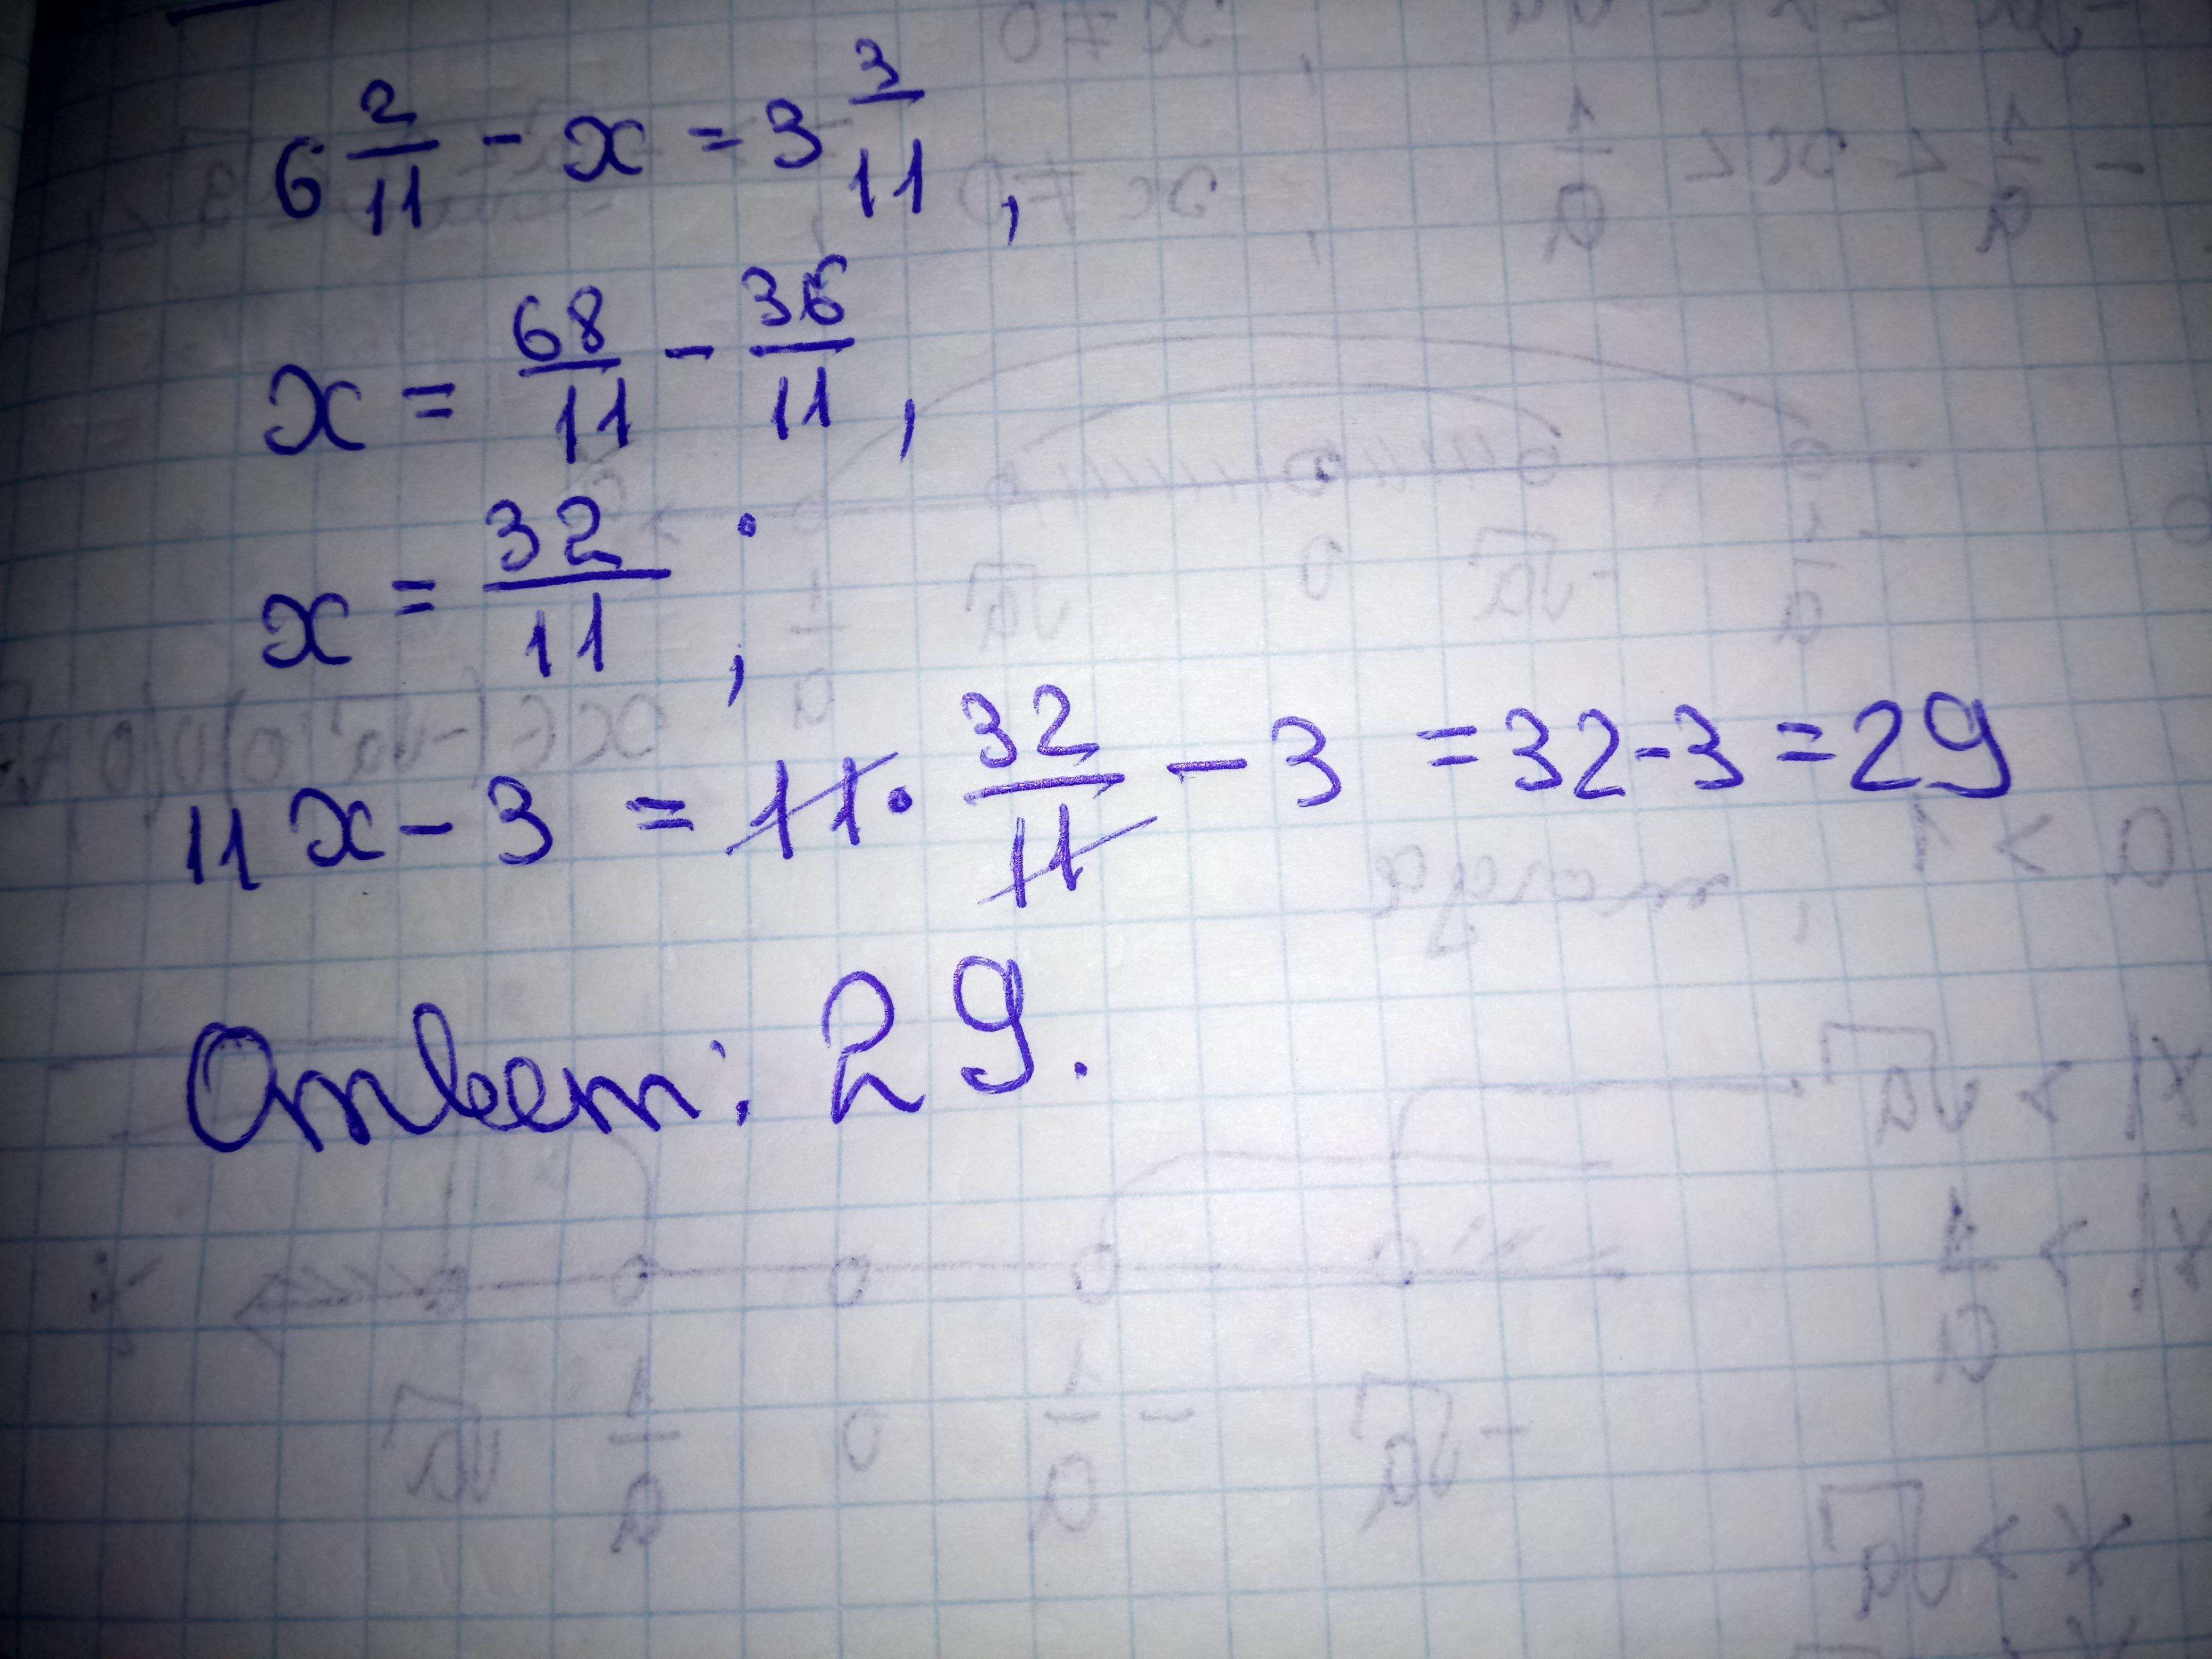 6 2/11 - x = 3 3/11,
x = 68/11 - 36/11,
x = 32/11,
11x - 3 = 11 · 32/11 - 3 = 32 - 3 = 29
Ответ: 29.